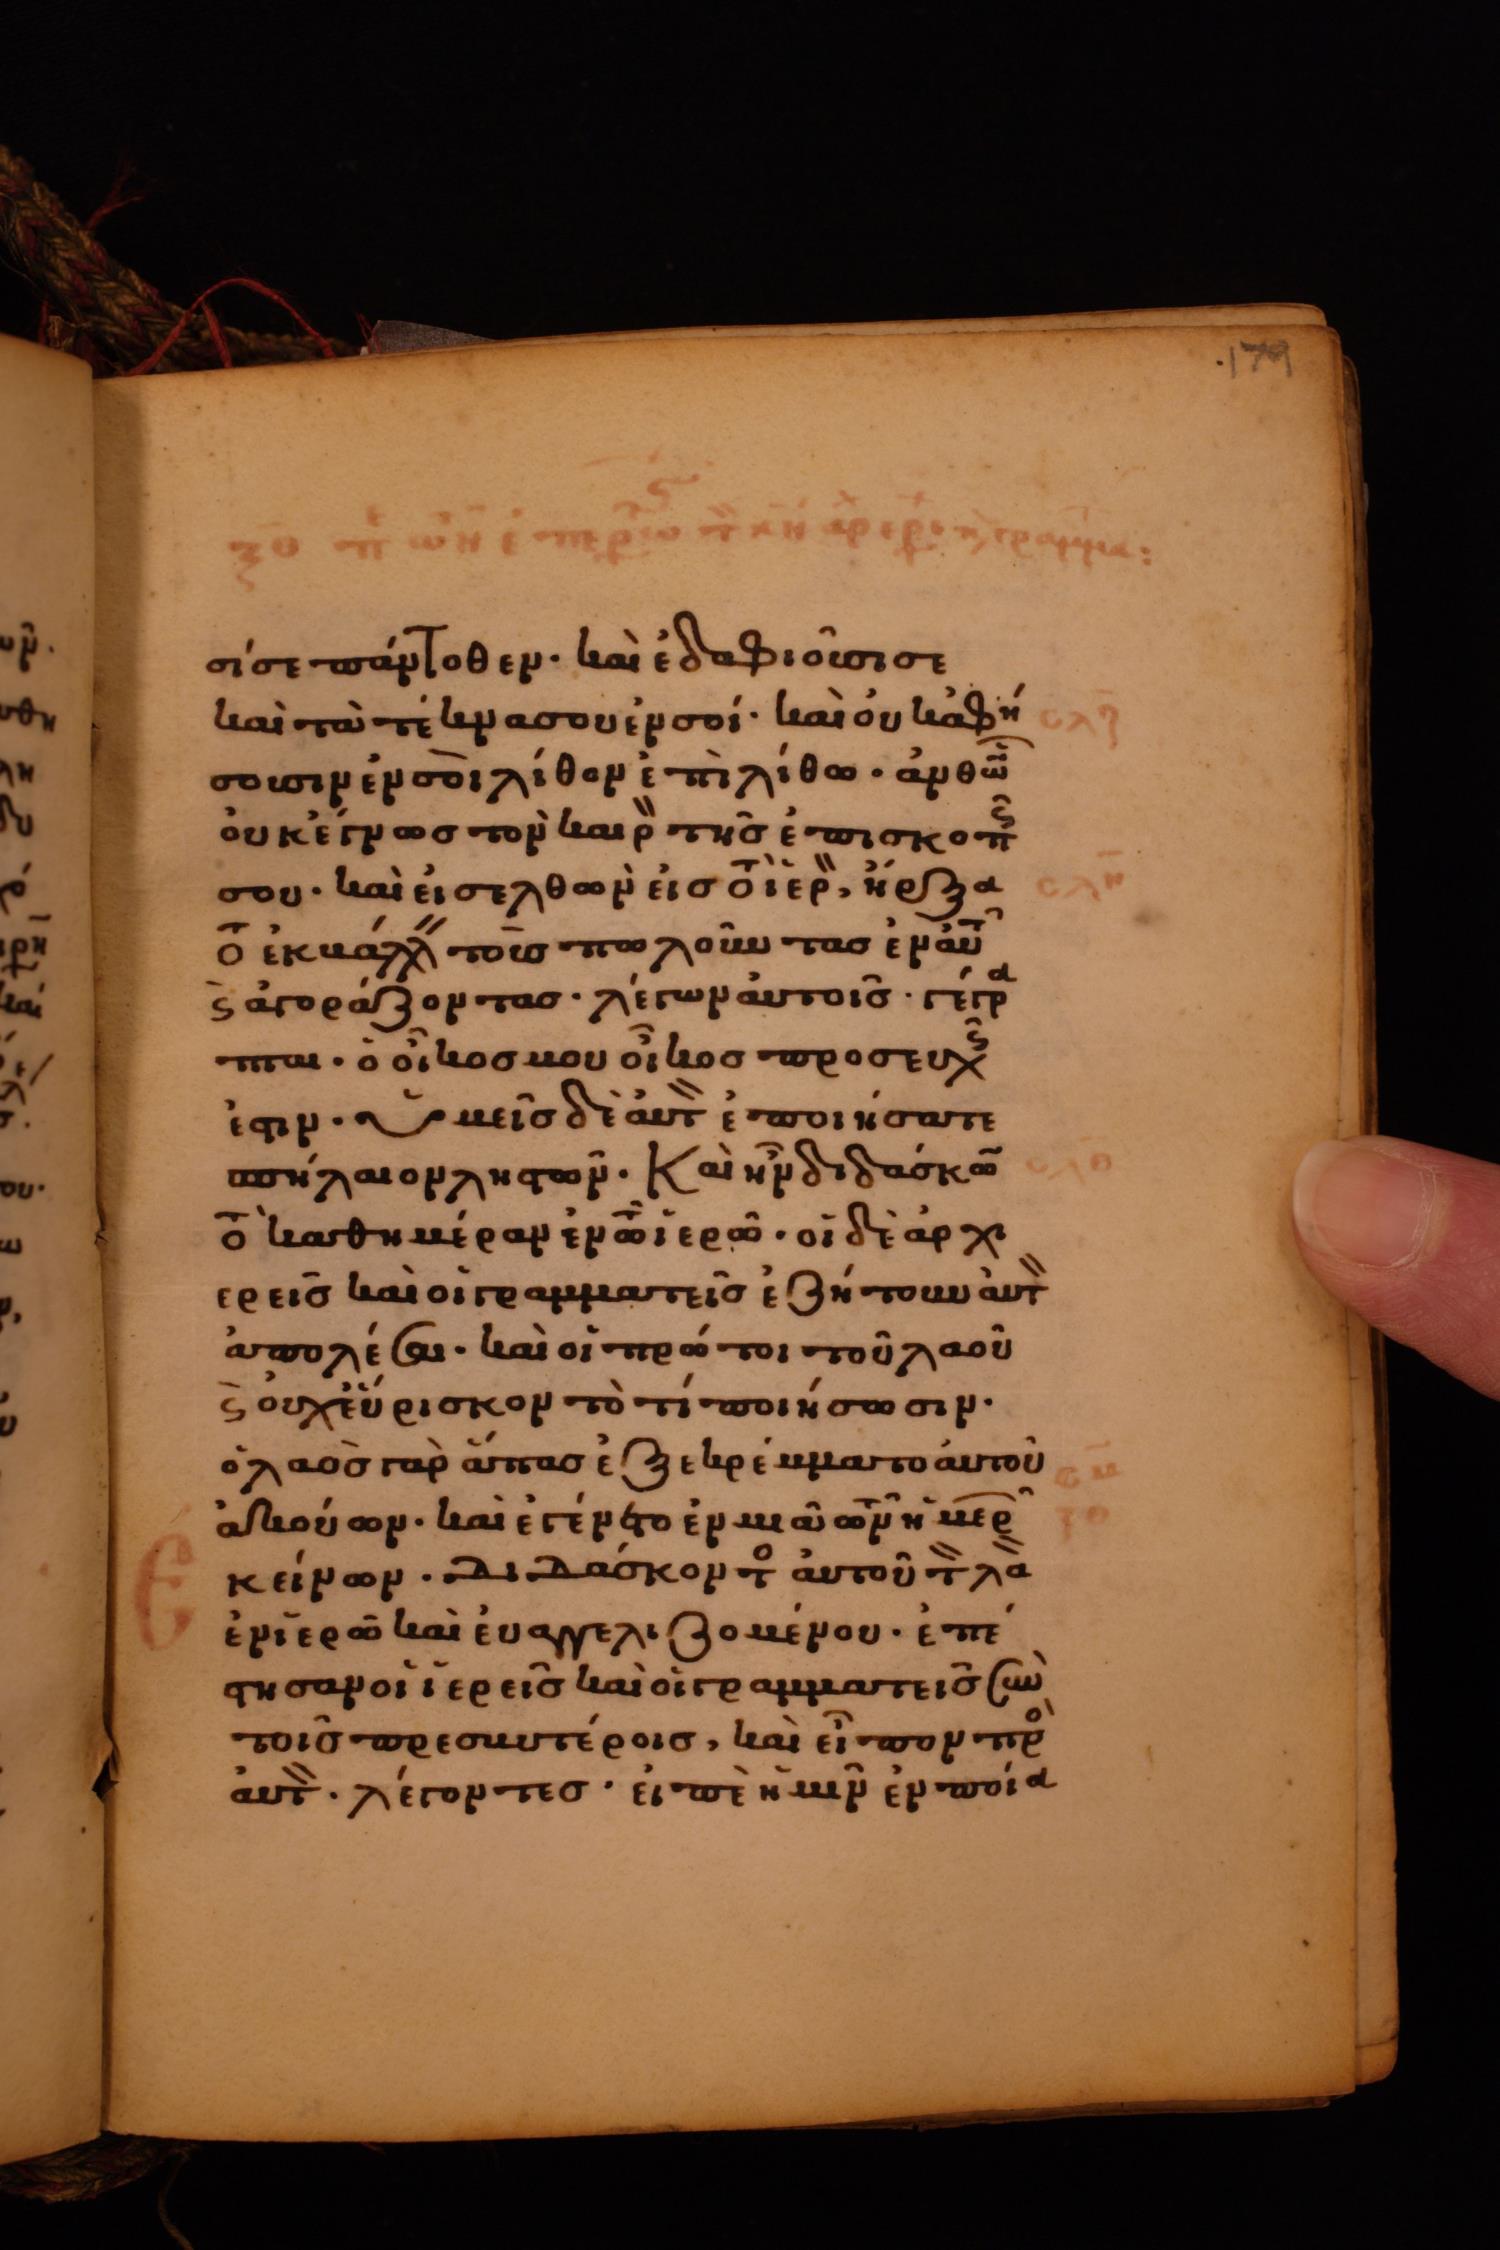 179
σίσε πάντοθεν· καὶ ἐδαφιοῦσι σε
καὶ τὰ τέκνα σου ἐν σοί· καὶ οὐκ ἀφή
σουσιν ἐν σοὶ λίθον ἐπὶ λίθω· ἀνθῶ
οὐκ ἔγνωσ τὸν καιρ τῆσ ἐπισκοπῆς
σου· καὶ εἰσελθὼν εἰσ τὸ ἱερ, ἤρξα
το ἐκβάλλ τοὺσ πωλοῦντασ ἐν αὐτ
ϛ ἀγοράζοντασ· λέγων αὐτοῖσ· γέγρα
πται· ὁ οἶκοσ μου οἶκοσ προσευχῆς
ἐστιν· ὑμεῖσ δὲ αὐτ ἐποιήσατε
σπήλαιον ληστῶν· Καὶ ἦν διδάσκω
το καθημέραν ἐν τῶ ἱερῶ· οἱ δὲ ἀρχι
ερεῖσ καὶ οἱ γραμματεῖσ ἐζήτουν αὐτ
ἀπολέσαι· καὶ οἱ πρώτοι τοῦ λαοῦ
ϛ οὐχ εὕρισκον τὸ τί ποιήσωσιν·
ὁ λαὸσ γὰρ ἅπασ ἐξεκρέμματο αὐτοῦ
ἀκούων· καὶ ἐγένετο ἐν μιᾶ τῶν ἡμερ
κείνων· διδάσκοντο αὐτοῦ τ λα
ἐν ἱερῶ καὶ εὐαγγελιζομένου· ἐπέ
στησαν οἱ ἱερεῖσ καὶ οἱ γραμματεῖσ σὺν
τοῖσ πρεσβυτέροισ, καὶ εἶπον πρὸ
αὐτ· λέγοντεσ· εἰπὲ ἡμῖν ἐν ποία